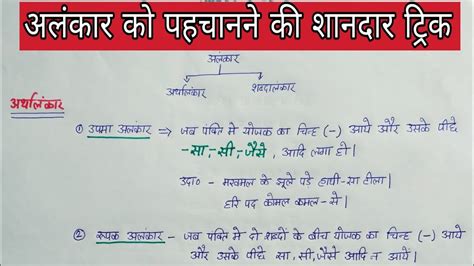 अलंकार को पहचानने की शानदार ट्रिक
अलंकार
अर्थालंकार शब्दालंकार
अर्थालंकार
① उपमा अलंकार ⇒ जब पंक्ति में योजक का चिन्ह (-) आये और उसके पीछे
-सा,-सी,-जैसे, आदि लगा हो।
उदा० - मखमल के झूले पड़े हाथी-सा टीला।
हरि पद कोमल कमल-से।
② रूपक अलंकार - जब पंक्ति में दो शब्दों के बीच योजक का चिन्ह (-) आये
और उसके पीछे सा, सी, जैसे आदि न आयें।